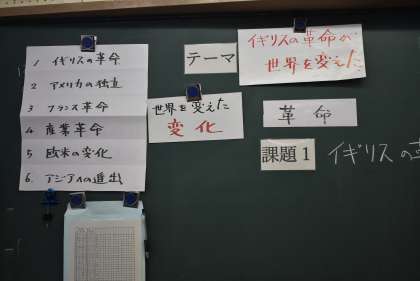 1 イギリスの革命
2 アメリカの独立
3 フランス革命
4 産業革命
5 欧米の変化
6. アジアへの進出
テーマ
イギリスの革命が
世界を変えた
世界を変えた
変化
革命
課題1
イギリスの革